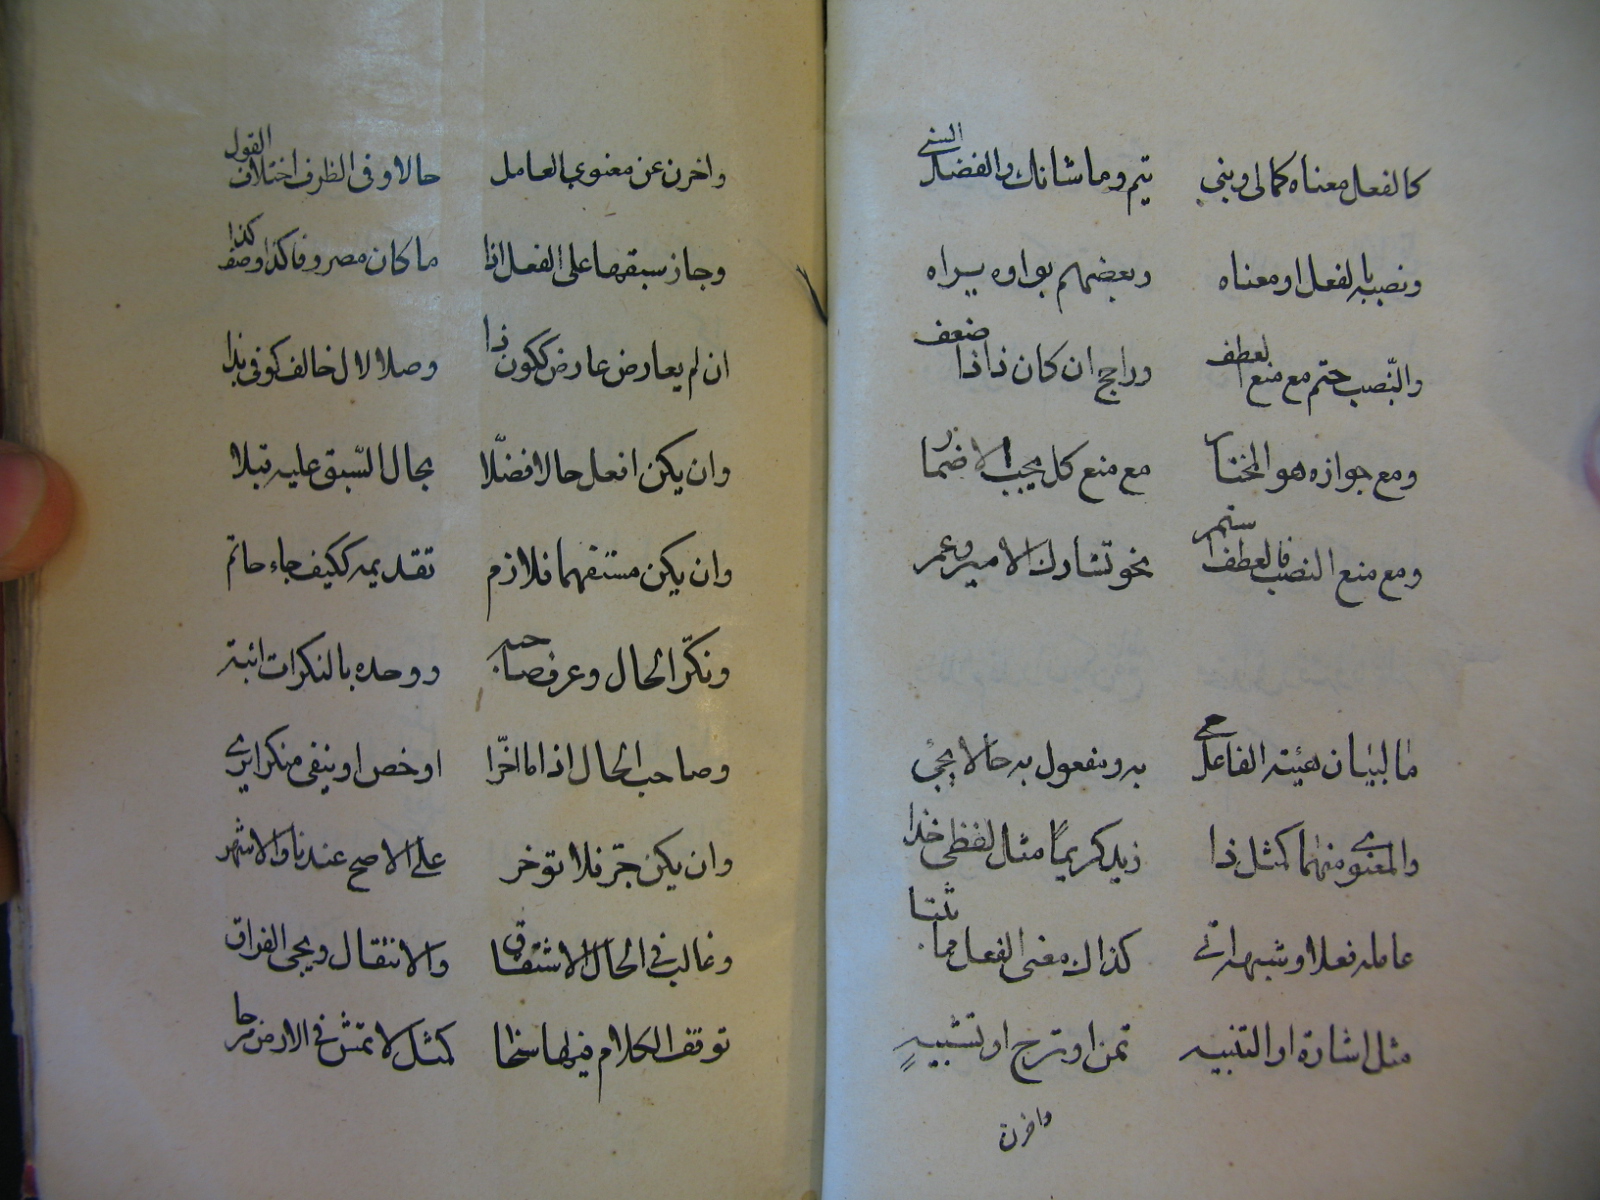 كالفعل معناه كمالى وبنى يتم وما شانك والفضل السنى
ونصبه بالفعل او معناه وبعضهم بواوه يراه
والنّصب حتم مع منع العطف وراجح ان كان ذا ذا ضعف
ومع جوازه هو المختار مع منع كل يجب الاضمار
ومع منع النصب فالعطف استمر نحو تشارك الامير وعمر
ما لبيان هيئة الفاعل مع به ومفعول به حالا يجئ
والمعنوى منهما كمثل ذا زيد كريمًا مثال لفظى خذا
عامله فعلا او شبهه اتى كذاك معنى الفعل مما ثبتا
مثل اشارة او التنبيه تمن او ترج او تشبيهٍ
واخرن
واخرن عن معنوي العامل حالا وفى الظرف اختلاف القول
وجاز سبقها على الفعل اذا ما كان مصروفا كذا وصف كذا
ان لم يعارض عارض ككون ذا وصلا لال خالف كوفى بذا
وان يكن افعل حالا فضّلا بحال السّبق عليه قبلا
وان يكن مستفهما فلازم تقديمه ككيف جاء حاتم
ونكّر الحال وعرف صاحبه ووحده بالنكرات ائبة
وصاحب الحال اذا ما اخّرا او خص او ينفى منكرا يرى
وان يكن جّر فلا توخر على الاصح عندنا والاشهر
وغالب في الحال الاشتقاق والانتقال ويجى الفراق
توقف الكلام فيها سخا كمثل لا تمش في الارض مرحا